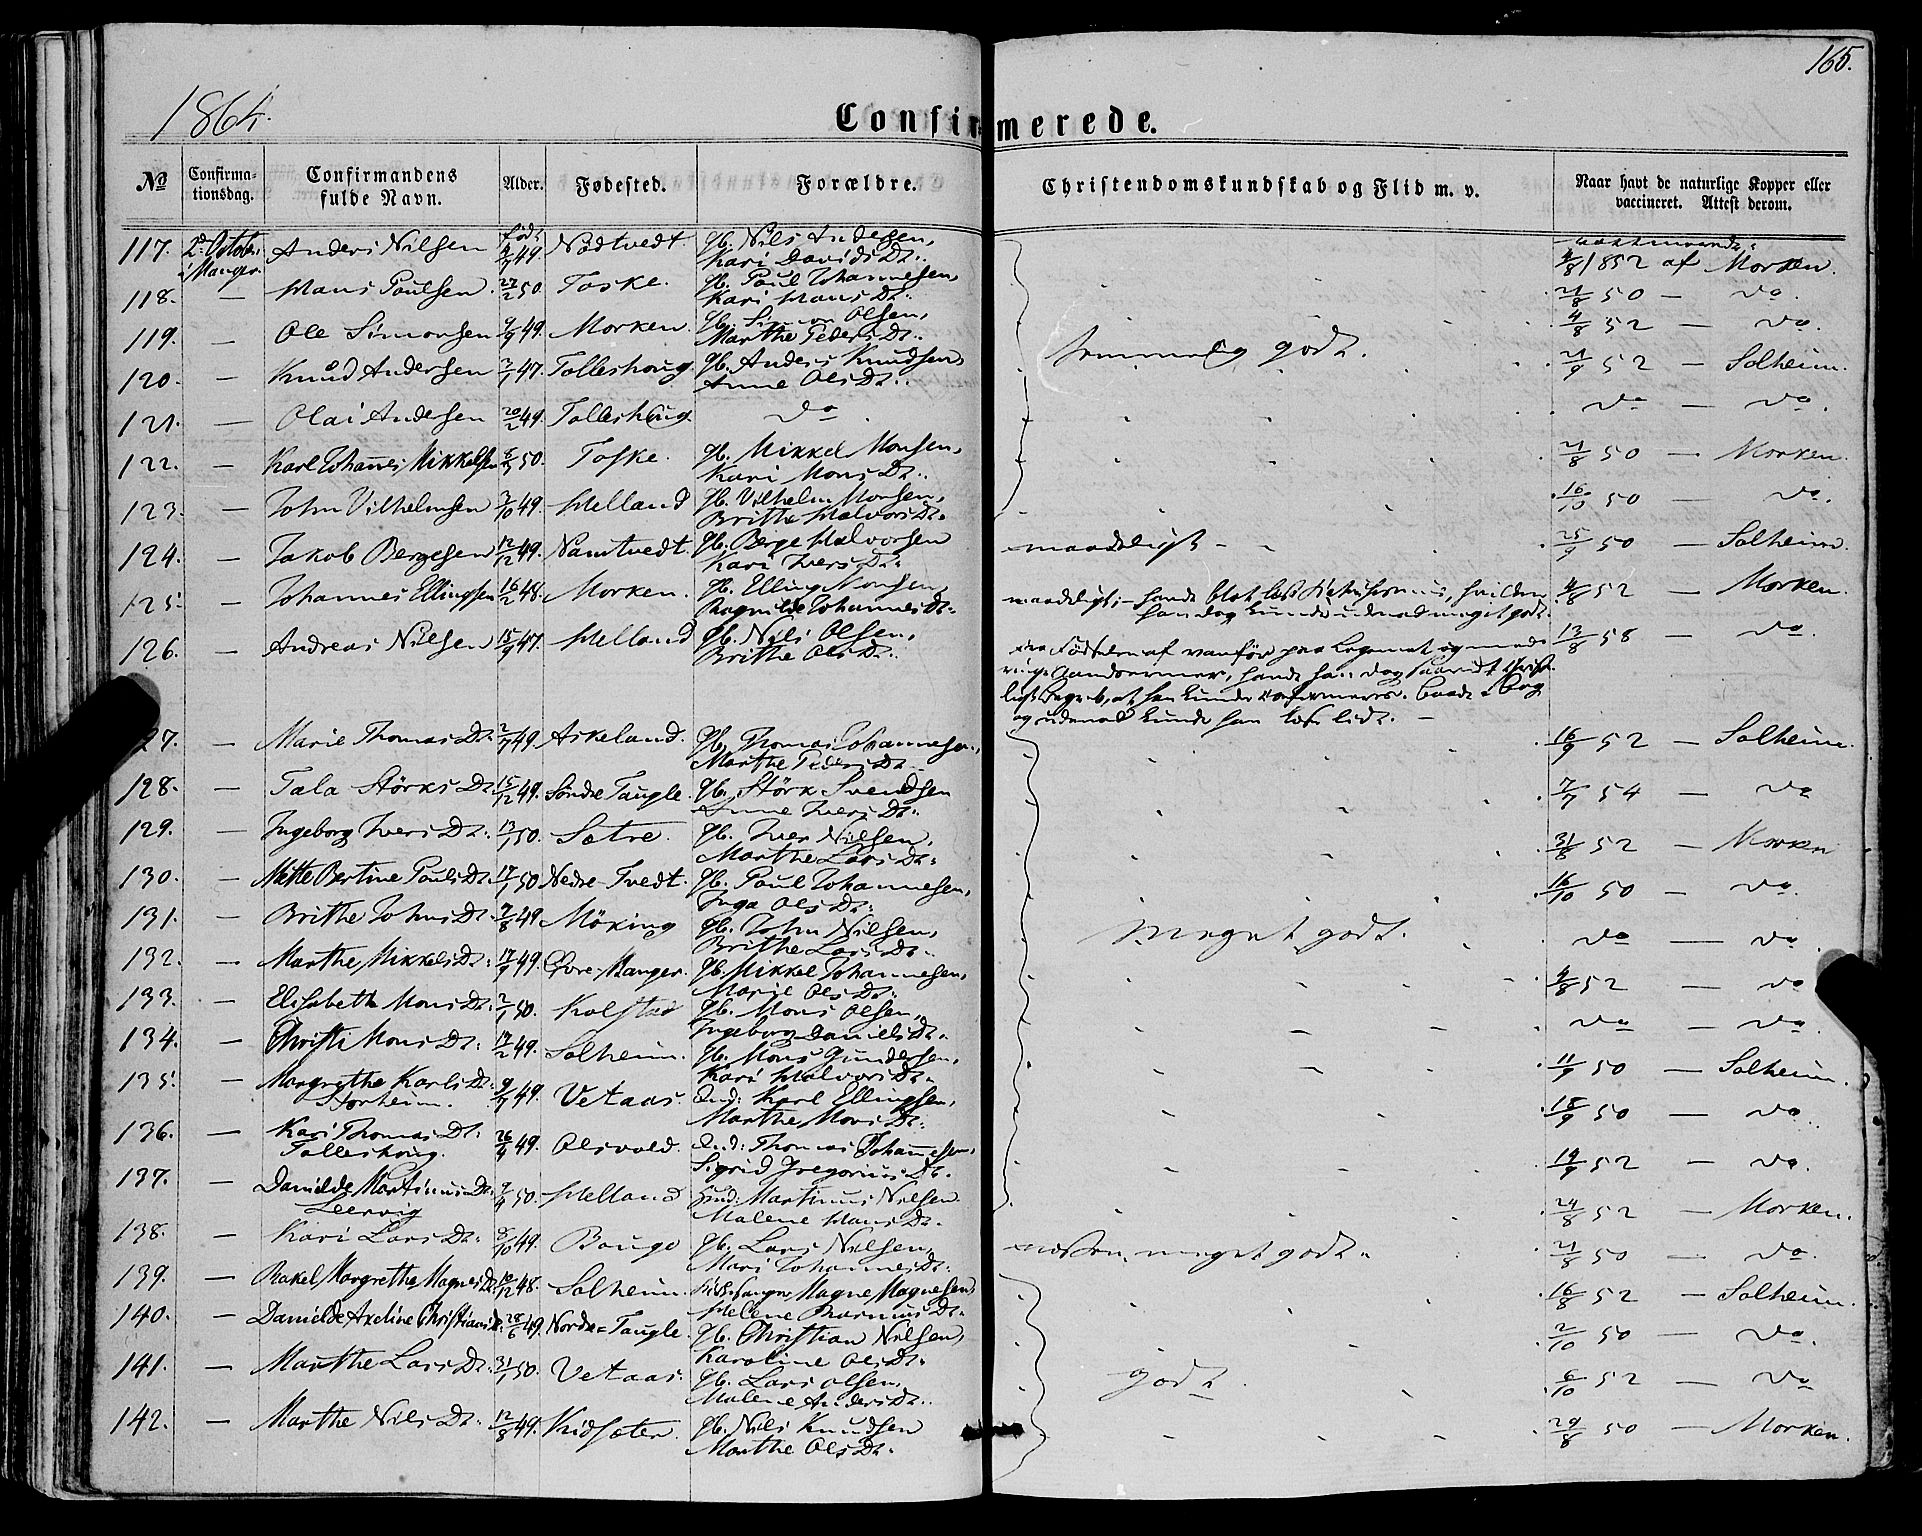 165.
1864.
Confirmerede.
No
Confirma-
tionsdag.
Confirmandens
fulde Navn.
Alder.
Fødested.
Forældre.
Christendomskundskab og Flid m. v.
Naar havt de naturlige Kopper eller
vaccineret. Attest derom.
117. 2d Octobr. i Manger Anders Nilsen født 4/7 49. Nødtvedt Gb. Nils Andersen,
Kari DavidsDr. 4/8 1852 af Morken.
118. — Hans Poulsen 22/2 50. Toske. Gb. Poul Johannesen,
Kari HansDr. 21/8 50 — do.
119. — Ole Simonsen 9/9 49. Morken. Gb. Simon Olsen,
Marthe PedersDr. 4/8 52 — do.
120. — Knud Andersen 3/1 47. Tolleshoug Gb. Anders Knudsen,
Anne OlsDr. temmelig godt. 21/9 52 — Solheim.
121. — Olai Andersen 20/2 49. Tolleshoug. do. do — do.
122. — Karl Johannes Mikkelsen 50. Toske. Gb. Mikkel Monsen,
Kari MonsDr. 21/8 50 — Morken.
123. — John Vilhelmsen 3/10 49. Helland Gb. Vilhelm Monsen,
Brithe HalvorsDr. 16/10 50 — do.
124. — Jakob Bergesen 12/12 49. Namtvedt. Gb. Berge Halvorsen
Kari IversDr. maadeligt — 25/9 50 — Solheim.
125. — Johannes Ellingsen 16/2 48. Morken. Gb. Elling Monsen,
Ragnilde JohannesDr. maadeligt; — havde blot læst Katechismus, hvilken
han dog kunde udenad meget godt. 4/8 52 — Morken.
126. — Andreas Nilsen 15/9 47. Helland Gb. Nils Olsen,
Brithe OlsDr. fra Fødselen af vanfør paa Legemet og med
ringe Aandsevner, havde han dog saavidt
at han kunde confirmeres. baade i Bog
og udenad kunde han læse lidt. — 13/8 58 — do.
127. — Marie ThomasDr. 2/7 49. Askeland. Gb. Thomas Johannesen,
Marthe PedersDr. 16/9 52 — Solheim.
128. — Tala StörksDr. 15/12 49. Søndre Taugle. Gb. Störk Svendsen
Anne IversDr. 7/7 54 — do
129. — Ingeborg IversDr. 13/1 50. Sætre. Gb. Iver Nilsen,
Marthe LarsDr. 31/8 52 — Morken
130. — Mette Bertine PoulsDr. 17/1 50 Nedre-Tvedt. Gb. Poul Johannesen,
Inga OlsDr. 16/10 50 — do.
131. — Brithe JohnsDr. 7/8 49 Möking Gb. John Nilsen,
Brithe LarsDr. meget godt. do — do.
132. — Marthe MikkelsDr. 17/9 49. Øvre-Manger. Gb. Mikkel Johannesen,
Marie OlsDr. 4/8 52 — do
133. — Elisabeth MonsDr. 2/1 50. Kolstad Gb. Mons Olsen,
Ingeborg DanielsDr. do — do.
134. — Christi MonsDr. 17/2 49. Solheim. Gb. Mons Gundersen,
Kari HalvorsDr. 11/9 50 — Solheim.
135. — Margrethe KarlsDr.
Storheim. 9/9 49. Vetaas. Ind: Karl Ellingsen,
Marthe MonsDr. 18/9 50 — do.
136. — Kari ThomasDr.
Tolleshoug. 26/4 49. Alsvold. Ind: Thomas Johannesen,
Sigrid GregoriusDr. 19/9 52 — do.
137. — Danilde MartinusDr.
Leervig 7/4 50. Helland Huusmd: Martinus Nilsen
Malene HansDr. 24/8 52 — Morken.
138. — Kari LarsDr. 8/10 49. Bauge Gb. Lars Nilsen,
Mari JohannesDr. næsten meget godt. 21/8 50 — do.
139. — Rakel Margrethe MagnesDr. 10/12 48. Solheim. Kirkesanger Magne Magnesen,
Helene RasmusDr. 16/8 52 — Solheim.
140. — Danilde Axeline ChristiansDr. 28/6 49. Nordre-Taugle. Gb. Christian Nilsen,
Karoline OlsDr. 2/10 50 — do.
141. — Marthe LarsDr. 31/1 50. Vetaas Gb. Lars Olsen,
Malene AndersDr. godt. 6/10 52 — do
142. — Marthe NilsDr. 12/8 49. Kidsæter. Gb. Nils Knudsen
Marthe OlsDr. 29/8 50 — Morken.